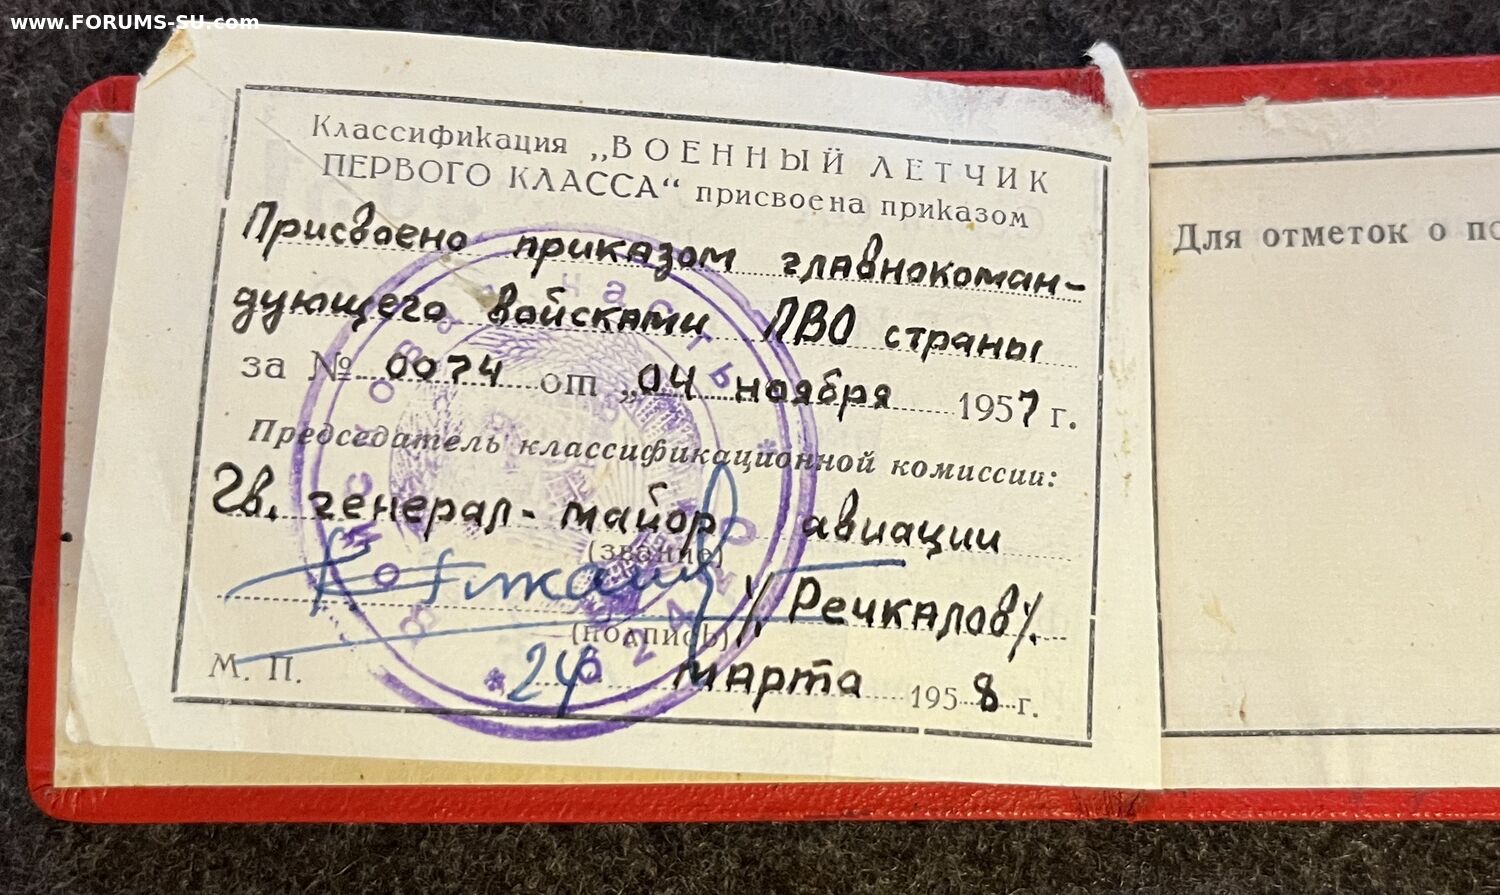 www.FORUMS-SU.com
Классификация „ВОЕННЫЙ ЛЕТЧИК
ПЕРВОГО КЛАССА“ присвоена приказом
Присвоено приказом главнокоман-
дующего войсками ПВО страны
за № 0074 от „04 ноября 1957 г.
Председатель классификационной комиссии:
Гв. генерал-майор авиации
(звание)
/Речкалов/.
(подпись)
М. П.
24 марта 1958 г.
Для отметок о по